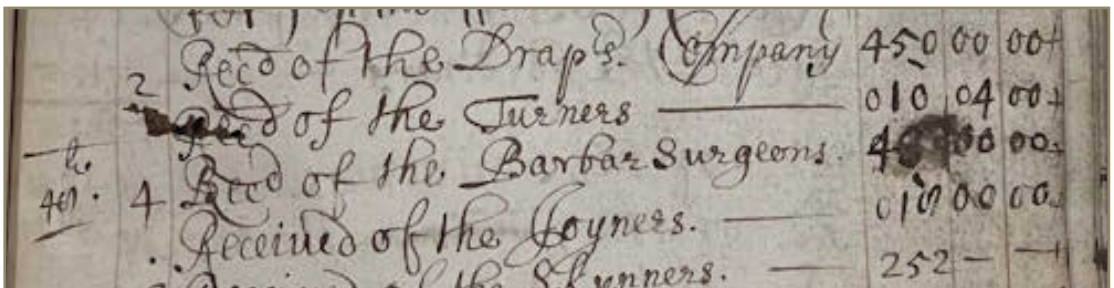 Recd of the Drap's. Company 450 00 00
2
Recd of the Turners 010 04 00
Recd of the Barbar Surgeons. 00 00
4 Received of the Joyners. 010 00 00
of the Skynners. 252 — —